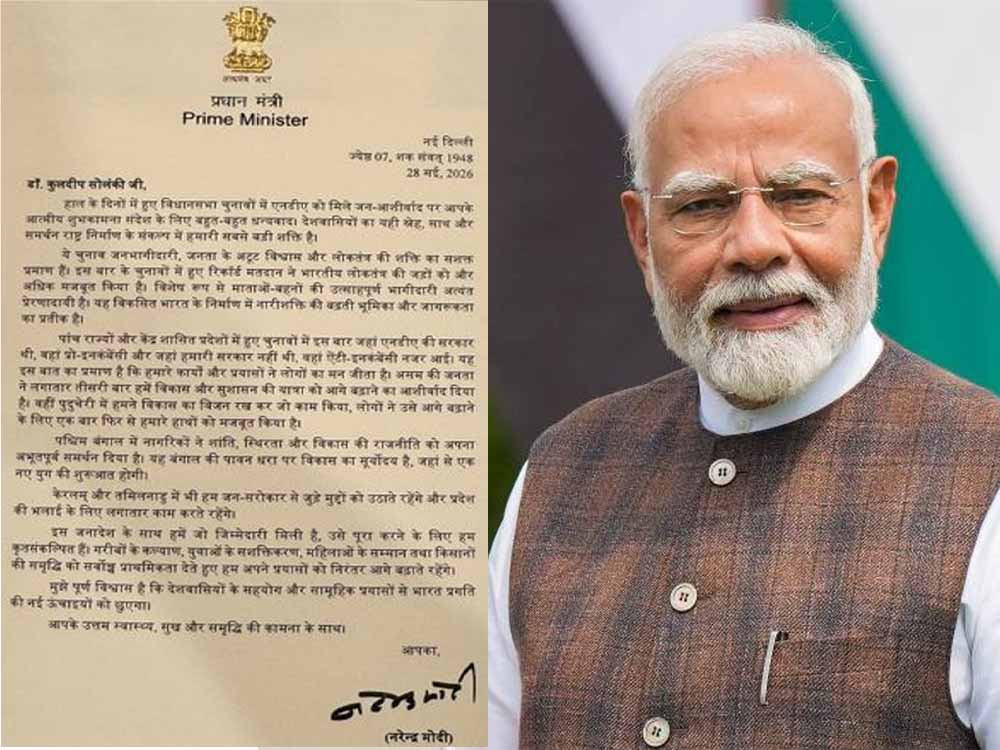 सत्यमेव जयते
प्रधान मंत्री
Prime Minister
नई दिल्ली
ज्येष्ठ 07, शक संवत् 1948
28 मई, 2026
डॉ. कुलदीप सोलंकी जी,
हाल के दिनों में हुए विधानसभा चुनावों में एनडीए को मिले जन-आशीर्वाद पर आपके
आत्मीय शुभकामना संदेश के लिए बहुत-बहुत धन्यवाद। देशवासियों का यही स्नेह, साथ और
समर्थन राष्ट्र निर्माण के संकल्प में हमारी सबसे बड़ी शक्ति है।
ये चुनाव जनभागीदारी, जनता के अटूट विश्वास और लोकतंत्र की शक्ति का सशक्त
प्रमाण हैं। इस बार के चुनावों में हुए रिकॉर्ड मतदान ने भारतीय लोकतंत्र की जड़ों को और
अधिक मजबूत किया है। विशेष रूप से माताओं-बहनों की उत्साहपूर्ण भागीदारी अत्यंत
प्रेरणादायी है। यह विकसित भारत के निर्माण में नारीशक्ति की बढ़ती भूमिका और जागरूकता
का प्रतीक है।
पांच राज्यों और केंद्र शासित प्रदेशों में हुए चुनावों में इस बार जहां एनडीए की सरकार
थी, वहां प्रो-इनकंबेंसी और जहां हमारी सरकार नहीं थी, वहां ऐंटी-इनकंबेंसी नजर आई। यह
इस बात का प्रमाण है कि हमारे कार्यों और प्रयासों ने लोगों का मन जीता है। असम की जनता
ने लगातार तीसरी बार हमें विकास और सुशासन की यात्रा को आगे बढ़ाने का आशीर्वाद दिया
है। वहीं पुदुचेरी में हमने विकास का विजन रख कर जो काम किया, लोगों ने उसे आगे बढ़ाने
के लिए एक बार फिर से हमारे हाथों को मजबूत किया है।
पश्चिम बंगाल में नागरिकों ने शांति, स्थिरता और विकास की राजनीति को अपना
अभूतपूर्व समर्थन दिया है। यह बंगाल की पावन धरा पर विकास का सूर्योदय है, जहां से एक
नए युग की शुरूआत होगी।
केरलम् और तमिलनाडु में भी हम जन-सरोकार से जुड़े मुद्दों को उठाते रहेंगे और प्रदेश
की भलाई के लिए लगातार काम करते रहेंगे।
इस जनादेश के साथ हमें जो जिम्मेदारी मिली है, उसे पूरा करने के लिए हम
कृतसंकल्पित हैं। गरीबों के कल्याण, युवाओं के सशक्तिकरण, महिलाओं के सम्मान तथा किसानों
की समृद्धि को सर्वोच्च प्राथमिकता देते हुए हम अपने प्रयासों को निरंतर आगे बढ़ाते रहेंगे।
मुझे पूर्ण विश्वास है कि देशवासियों के सहयोग और सामूहिक प्रयासों से भारत प्रगति
की नई ऊंचाइयों को छुएगा।
आपके उत्तम स्वास्थ्य, सुख और समृद्धि की कामना के साथ।
आपका,
नरेन्द्र मोदी
(नरेन्द्र मोदी)